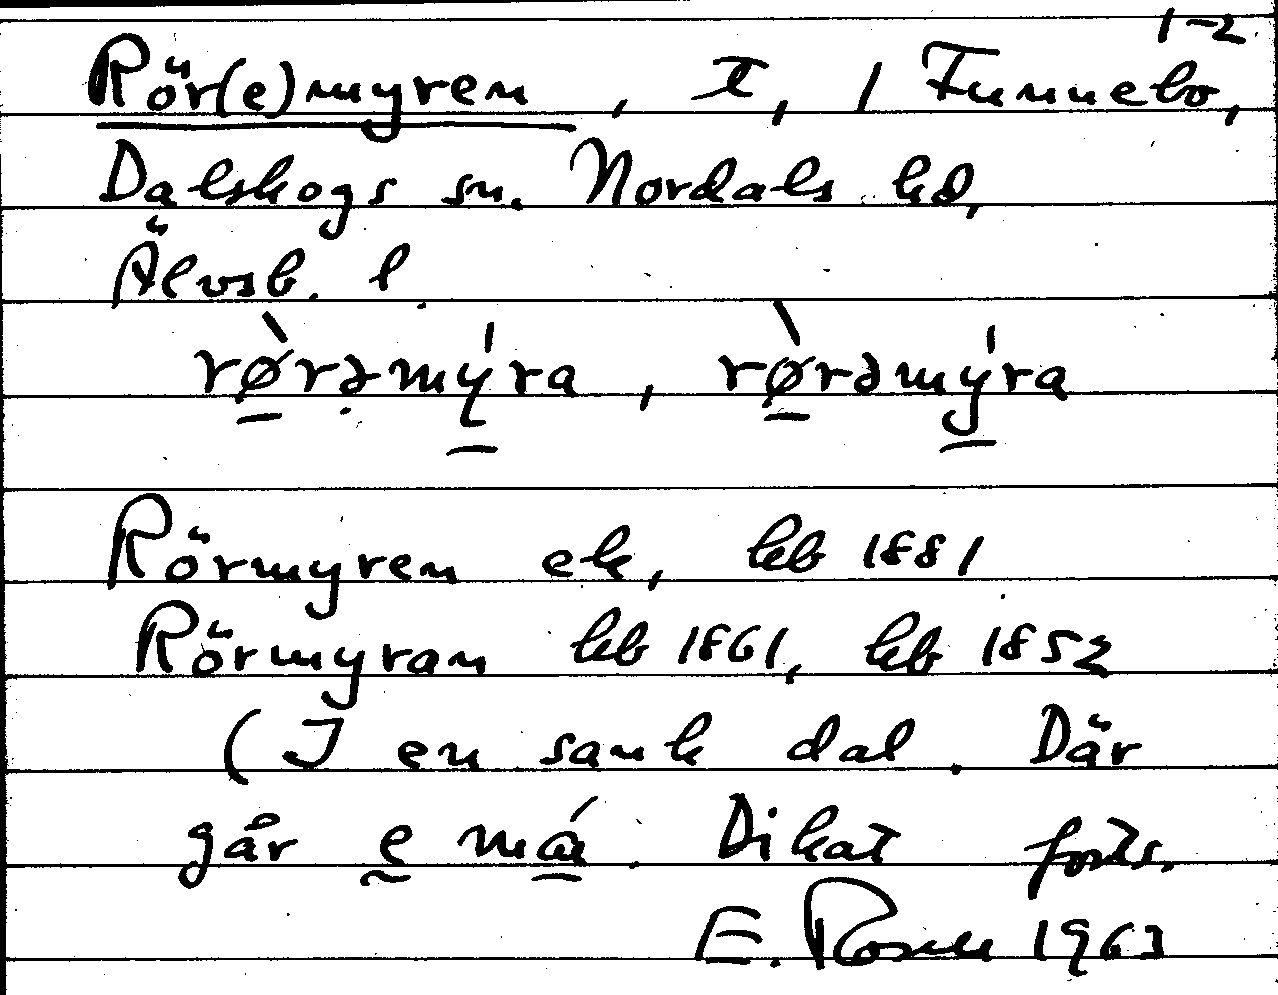 1-2
Rör(e)myren, t, 1 Funnebo,
Dalskogs sn. Nordals hd,
Älvsb. l.
rø̀rəmy̍ra, rø̀rəmy̍ra
Rörmyren ek, leb 1881
Rörmyran leb 1861, leb 1852
(I en sank dal. Där
går e må. Dikat forts.
E. Rosell 1963